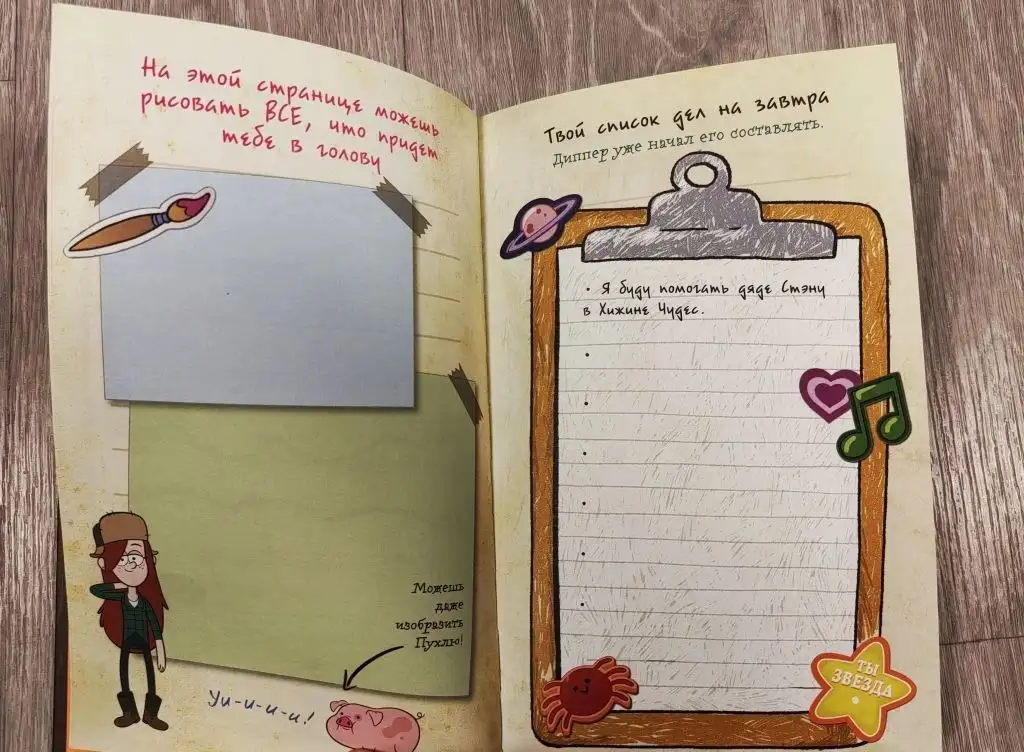 На этой странице можешь
рисовать ВСЕ, что придет
тебе в голову
Можешь
даже
изобразить
Пухлю!
Уи-и-и-и!
Твой список дел на завтра
Диппер уже начал его составлять.
• Я буду помогать дяде Стэну
в Хижине Чудес.
•
•
•
•
•
•
ТЫ
ЗВЕЗДА